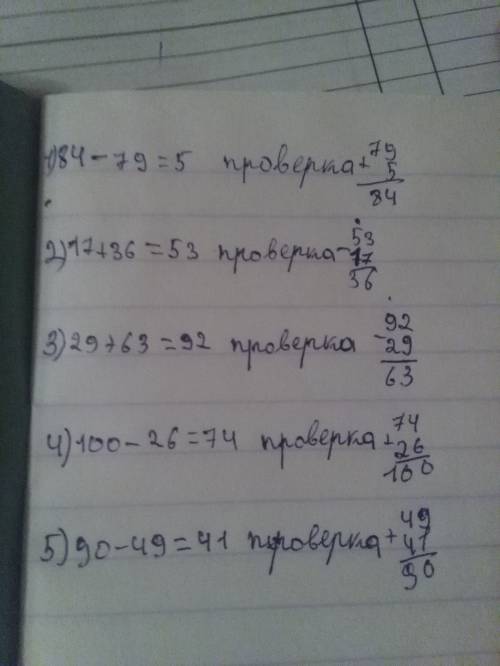 1) 84 - 79 = 5 проверка + 79
5
84
2) 17 + 36 = 53 проверка - 53
17
36
3) 29 + 63 = 92 проверка - 92
29
63
4) 100 - 26 = 74 проверка + 74
26
100
5) 90 - 49 = 41 проверка + 49
41
90